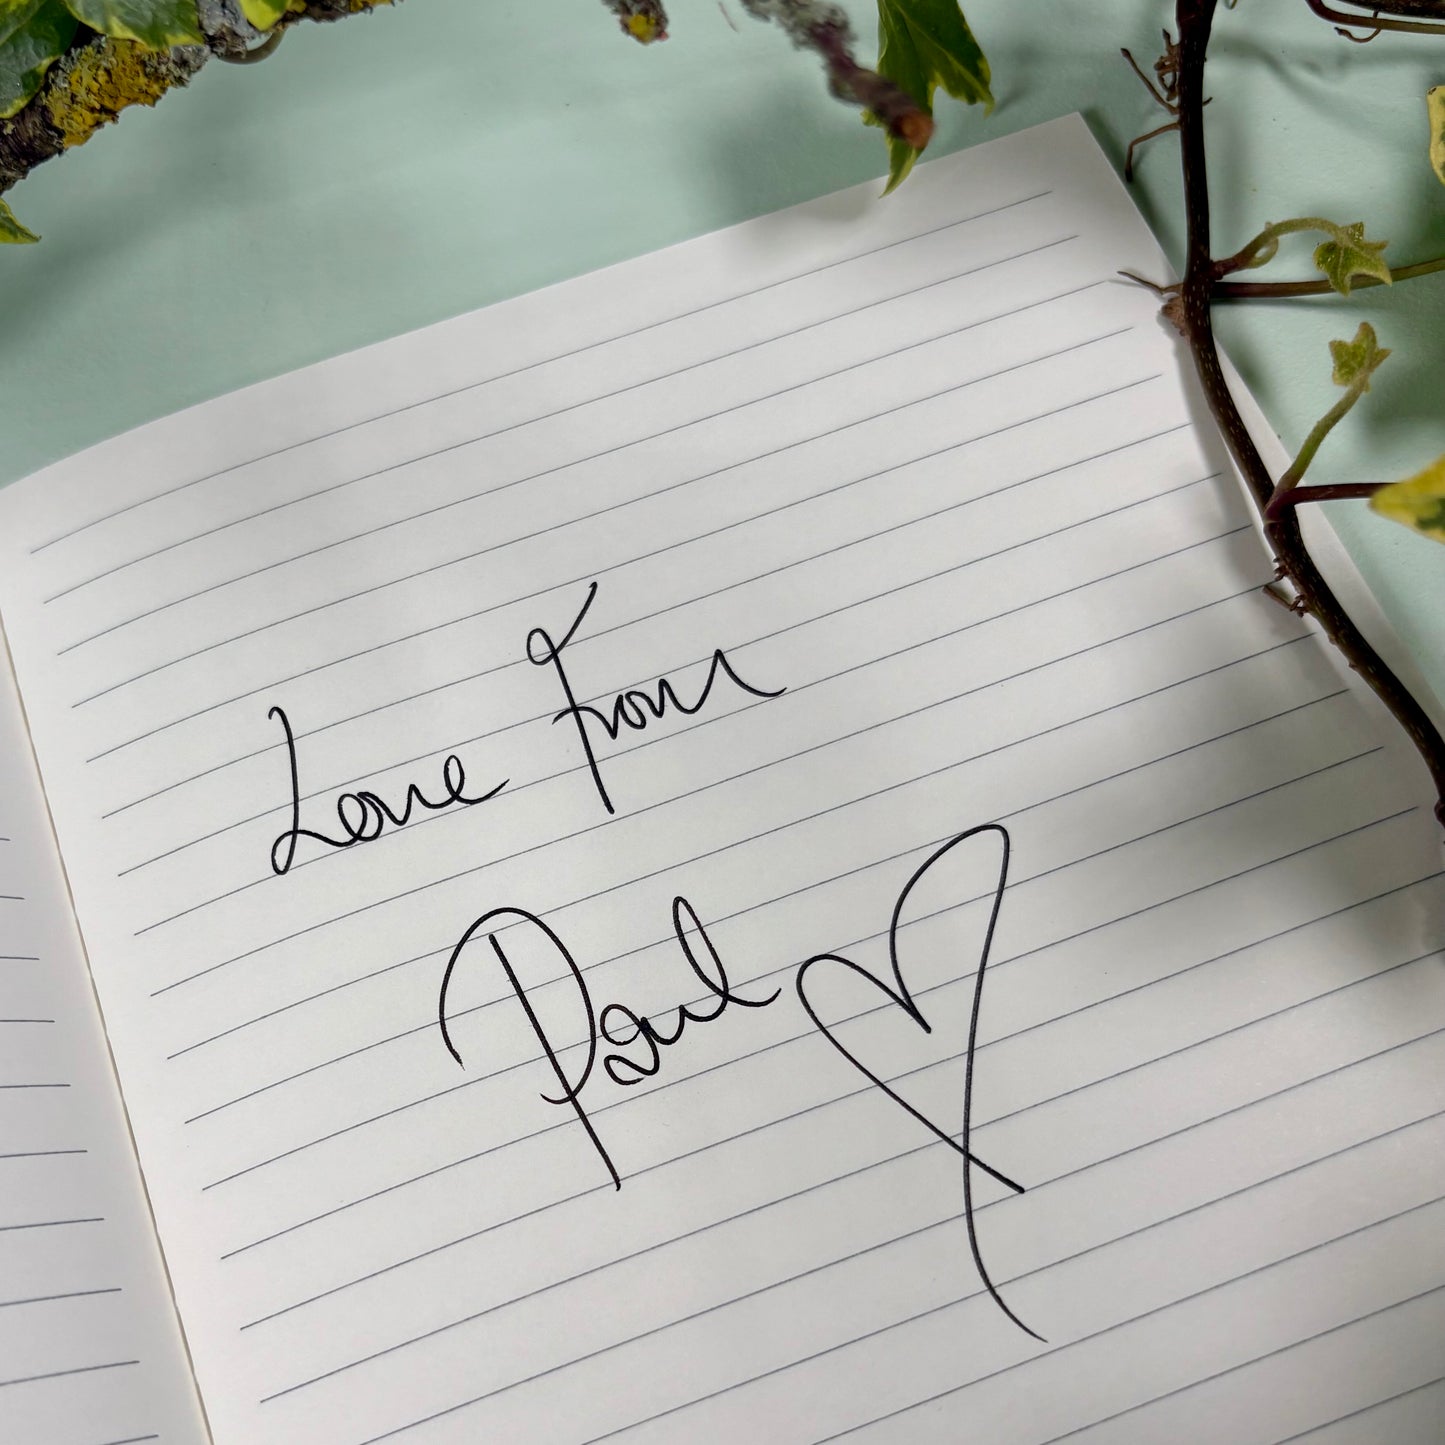 Love From
Paul ♡